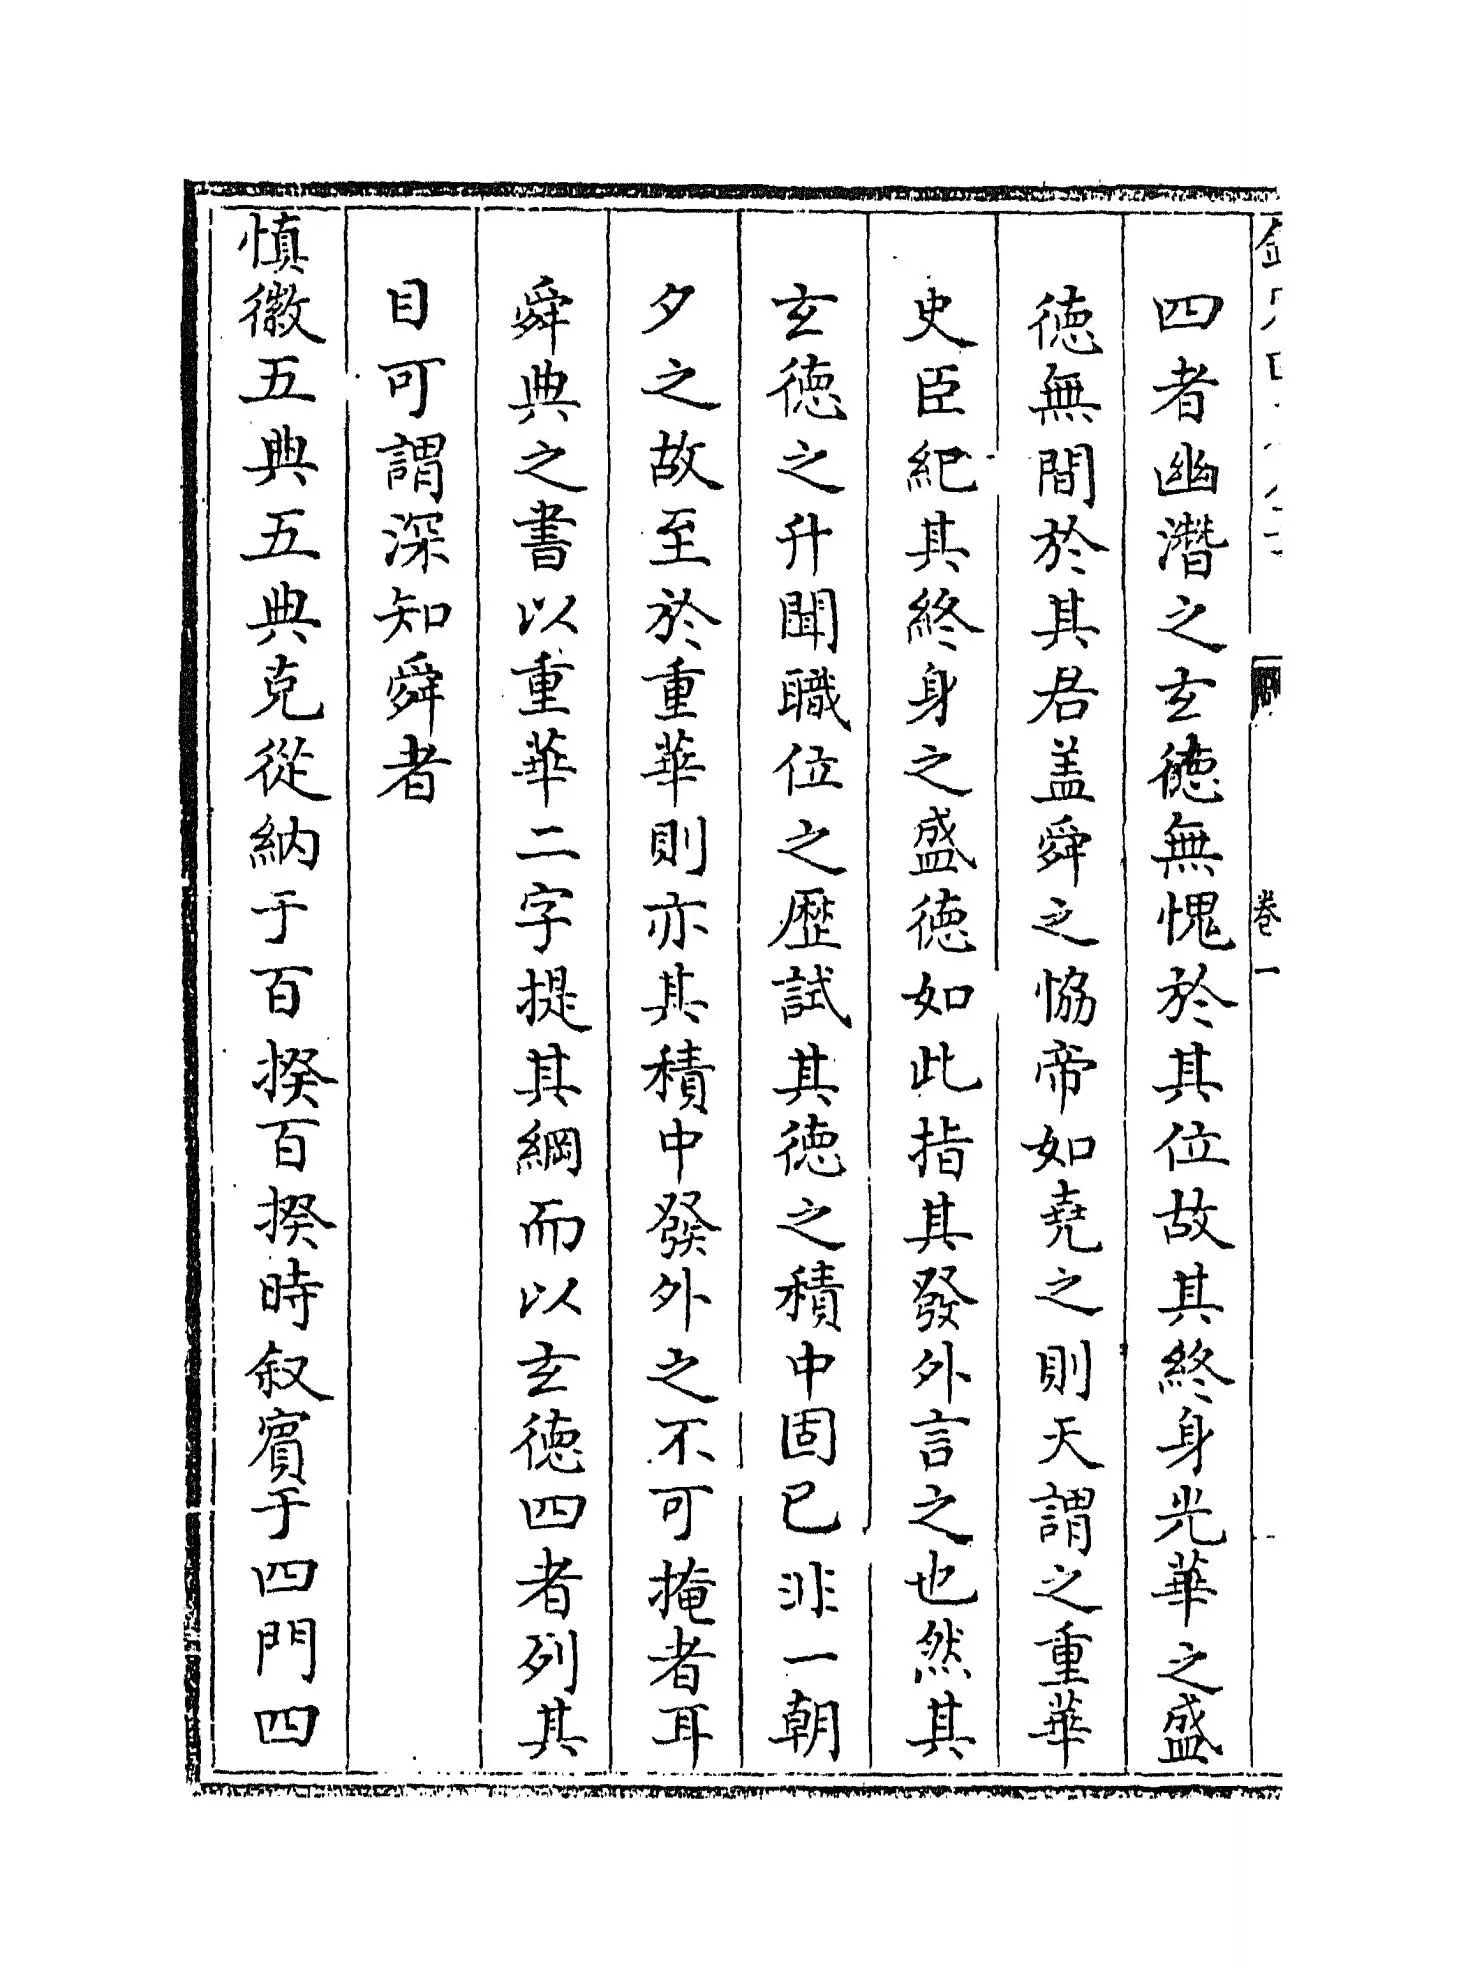 四者幽潛之玄德無愧於其位故其終身光華之盛
德無間於其君盖舜之恊帝如堯之則天謂之重華
史臣紀其終身之盛德如此指其發外言之也然其
玄德之升聞職位之歷試其德之積中固已非一朝
夕之故至於重華則亦其積中發外之不可掩者耳
舜典之書以重華二字提其綱而以玄德四者列其
目可謂深知舜者
慎徽五典五典克從納于百揆百揆時叙賓于四門四
卷一